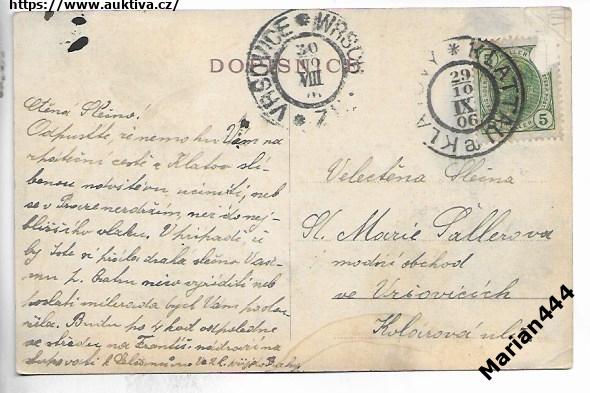 https://www.auktiva.cz/
DOPISNICE
VRŠOVICE * WRSCH
30
VIII
KLATOVY * KLATTAU
29
10
IX
06
a
5
Ctěná Slečno!
Odpusťte, že nemohu Vám na
zpáteční cestě z Klatov slí-
benou návštěvu učiniti, neb
se v Praze nezdržím, než do nej-
bližšího vlaku. V případě, že
by jste si přála drahá slečno
mu p. něco vyříditi neb
poslati milerada bych Vám
Budu po 4 hod odpoledne
ve středu na Františ. nádraží na
Velectěna Slečna
Sl. Marie Sallerova
modní obchod
ve Vršovicích
Kolárova ul.
Marian444